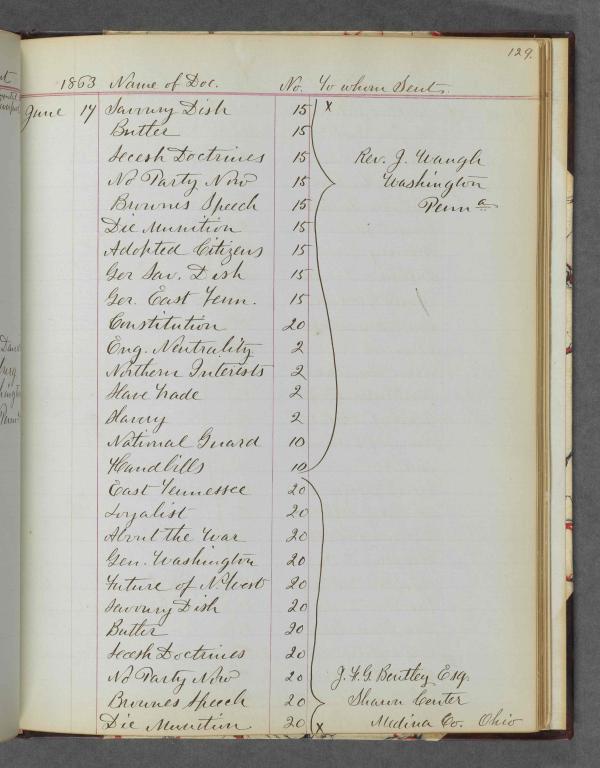 129.
1863 Name of Doc. No. To whom Sent.
June 17 Savoury Dish 15 x
Butler 15
Secesh Doctrines 15 Rev. J. Waugh
No Party Now 15 Washington
Brownes Speech 15 Penna
Die Munition 15
Adopted Citizens 15
Ger Sav. Dish 15
Ger. East Tenn. 15
Constitution 20
Eng. Neutrality 2
Northern Interests 2
Slave Trade 2
Slavery 2
National Guard 10
Handbills 10
East Tennessee 20
Loyalist 20
About the War 20
Gen. Washington 20
Future of N. West 20
Savoury Dish 20
Butler 20
Secesh Doctrines 20
No Party Now 20 J. F. G. Bentley Esq.
Brownes Speech 20 Sharon Center
Die Munition 20 x Medina Co. Ohio